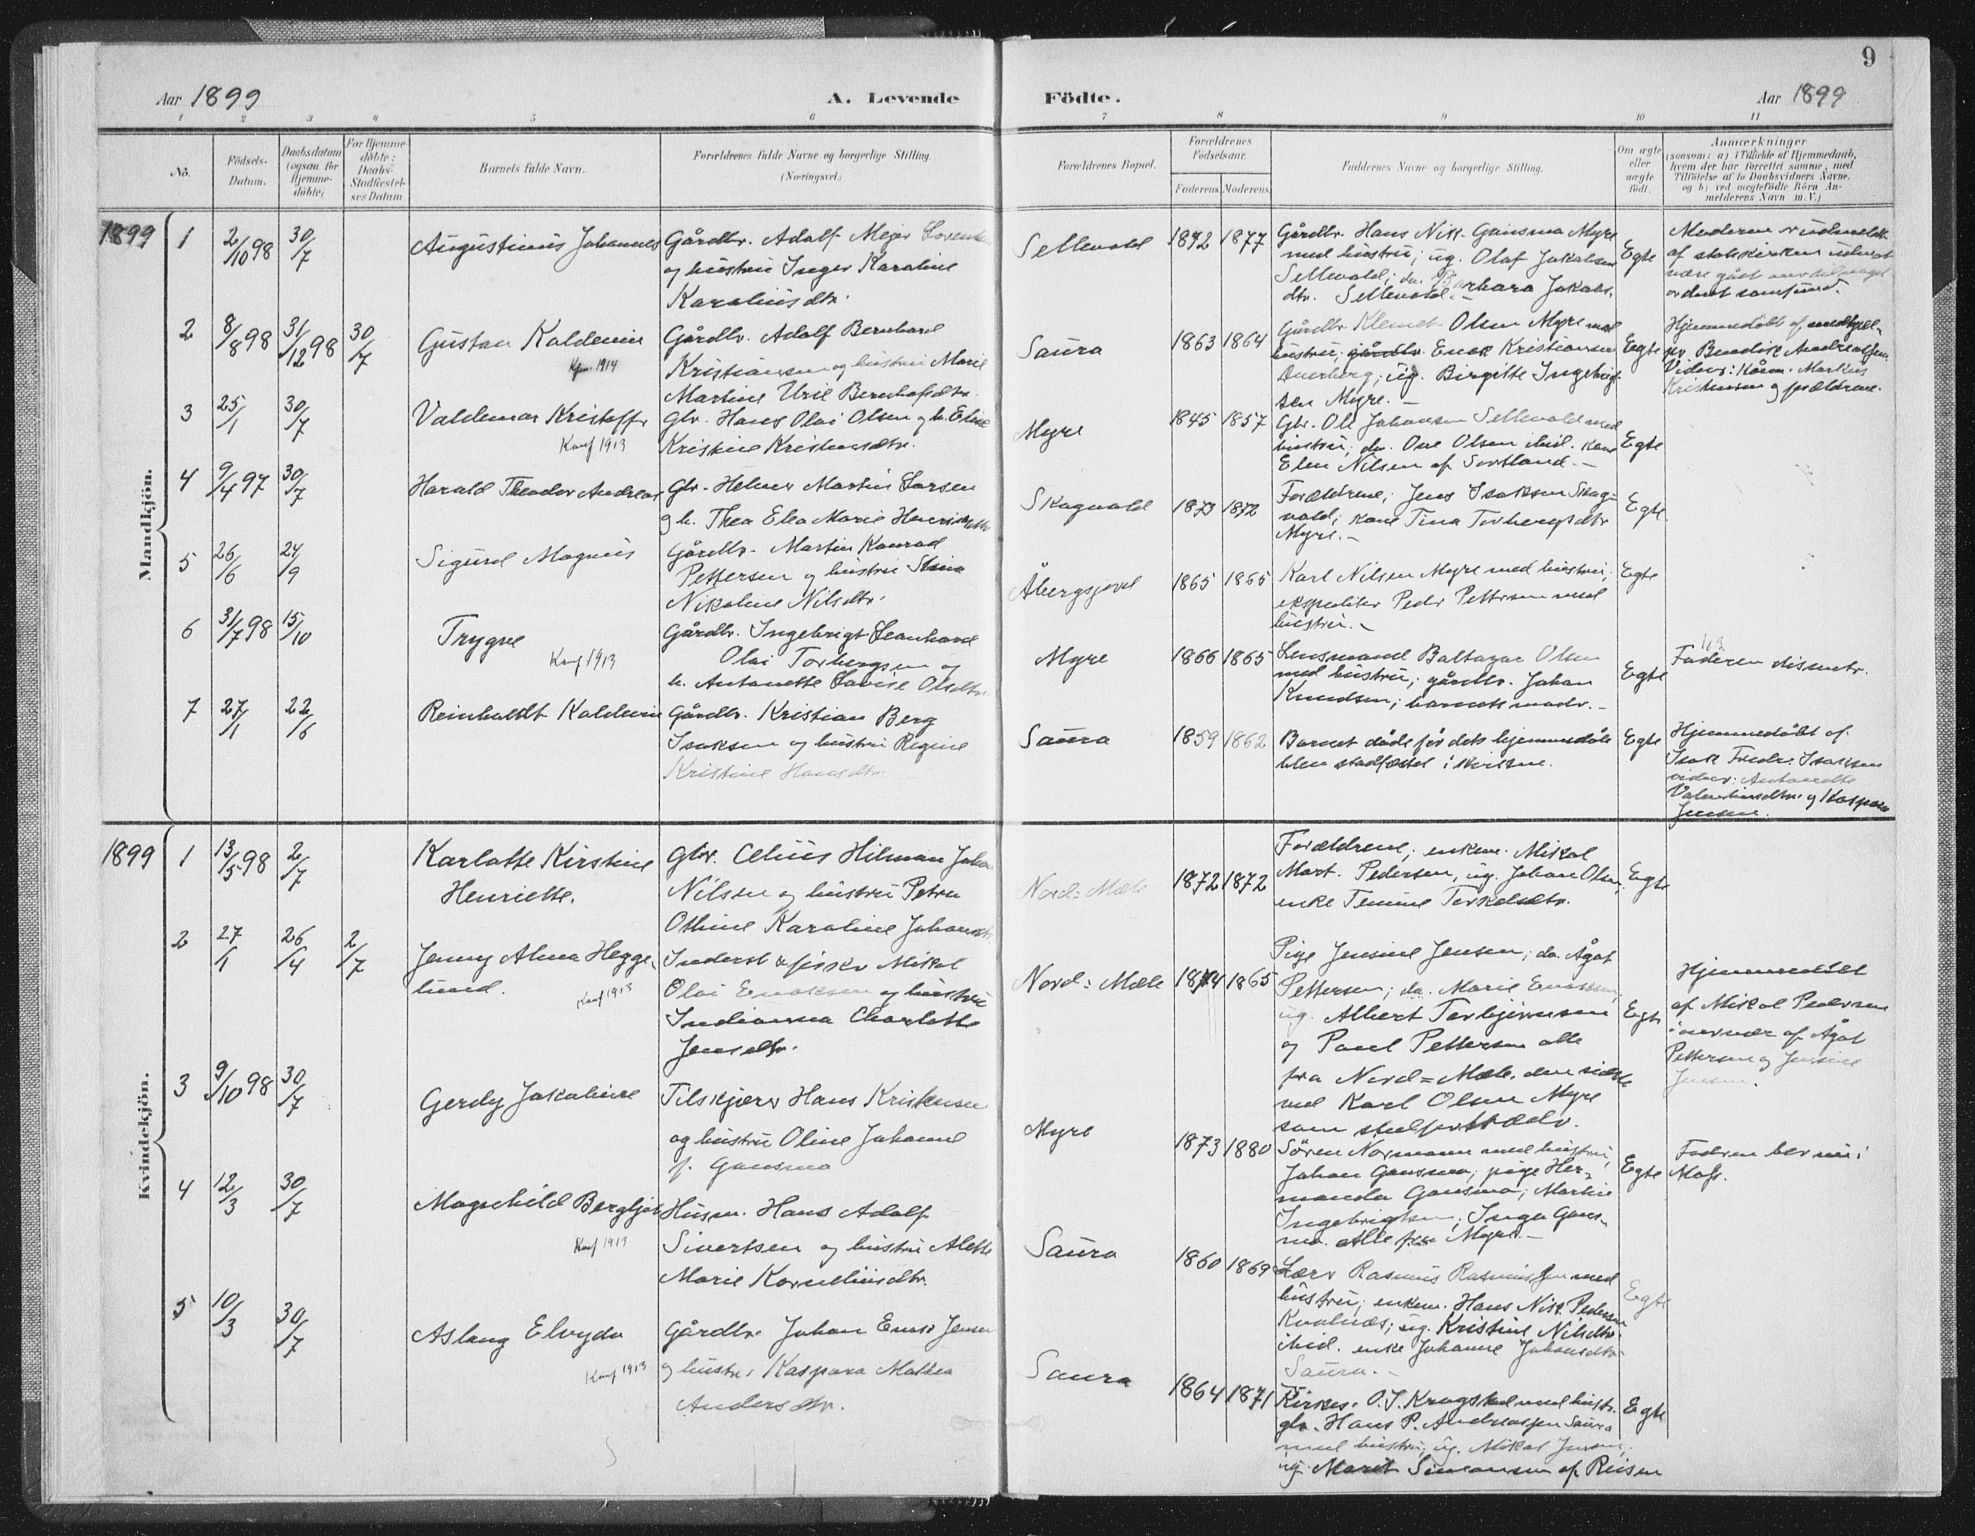 9
Aar 1899
A. Levende
Födte.
Aar 1899
1 2 3 4 5 6 7 8 9 10 11
No.
Födsels-
Datum.
Daabsdatum
(ogsaa for
Hjemme-
döbte)
For Hjemme-
döbte:
Daabs-
Stadfæstel-
ses Datum
Barnets fulde Navn.
Forældrenes fulde Navne og borgerlige Stilling
(Næringsvei.)
Forældrenes Bopæl.
Forældrenes
Fødselsaar.
Faderens Moderens
Faddernes Navne og borgerlige Stilling.
Om ægte
eller
uægte
født.
Anmærkninger
(saasom: a) i Tilfælde af Hjemmedaab,
hvem der har forrettet samme, med
Tilföielse af to Daabsvidners Navne,
og b) ved uægtefödte Börn An-
melderens Navn m. V.)
Mandkjön.
1899 1 2/10 98 30/7
Augustinus Johannes
Gårdbr. Adolf Mejer
og hustru Inger Karoline
Karoliusdtr.
Sellevold
1872 1877
Gårdbr. Hans Nik. Gansmo Myre
med hustru; ug. Olaf Jakobsen
Sellevold; do. Barbara Jakobs-
dtr. Sellevold.-
Egte
Moderen er udmeldt
af statskirken
2 8/8 98 31/12 98 30/7
Gustav Kaldemin
1914
Gårdbr. Adolf Bernhard
Kristiansen og hustru Marie
Martine
Saura
1863 1864
Gårdbr Klemet Olsen Myre med
hustru; Enok Kristiansen
ug. Birgitte Ingebrigt-
sen Myre.-
Egte
Hjemmedöbt af
Bendik Andreassen
Markus
Kristensen og forældrene.
3 25/1 30/7
Valdemar Kristoffer
Konf 1913
Gbr. Hans Olai Olsen og h. Eline
Kristine Kristensdtr.
Myre
1845 1857
Gbr. Ole Johansen Sellevold med
hustru; do. Ove Olsen ibid. kone
Elen Nilsen af Sortland.-
Egte
4 9/4 97 30/7
Harald Theodor Andreas
Gbr. Helmer Martin Larsen
og h. Thea Elea Marie
Skogvold
1873 1872
Forældrene; Jens Isaksen Skog-
vold; kone Tina Torbergsdtr
Myre.-
Egte.
5 26/6 24/9
Sigurd Magnus
Gårdbr. Martin Konrad
Pettersen og hustru Stina
Nikoline Nilsdtr.
Åbergsjord
1865 1865
Karl Nilsen Myre med hustru;
ekspeditør Peder Pettersen med
hustru.-
Egte
6 31/7 98 15/10
Trygve
Konf 1913
Gårdbr. Ingebrigt Leonhard
Olai Torbergsen og
h. Antonette Lovise Olsdtr.
Myre
1866 1865
Lensmand Baltazar Olsen
med hustru; gårdbr. Johan
Knudsen; barnets moder.-
Egte
Faderen dissenter.
7 27/1 22/6
Reinholdt Kaldemin
Gårdbr. Kristian Berg
Isaksen og hustru Regine
Kristine Hansdtr.
Saura
1859 1862
Barnet døde før dets hjemmedåb
blev stadfæstet i kirken.
Egte
Hjemmedöbt af
Isak Fredr. Isaksen
vidner: Antonette
Valentinsdtr. og Kaspara
Jensen.
Kvindekjön.
1899 1 13/5 98 2/7
Karlotte Kirstine
Henriette.
Gbr. Celius Hilmar Johan
Nilsen og hustru Petra
Othine Karoline
Nord-Mæle
1872 1872
Forældrene; enkem. Mikal
Mart. Pedersen, ug. Johan Olsen,
enke Temine Terkelsdtr.
Egte
2 27/1 26/4 2/7
Jenny Alma Hegge-
lund.
Konf 1913
Inderst & fisker Mikal
Olai Enoksen og hustru
Indianna Charlotte
Jensdtr.
Nord-Mæle
1874 1865
Pige Jensine Jensen; do. Ågot
Pettersen; do. Marie Enoksen;
ug. Albert Torbjörnsen
og Paul Pettersen alle
fra Nord=Mæle. den sidste
ved Karl Olsen Myre
som
Egte
Hjemmedöbt
af Mikal Pedersen
i overvær af Ågot
Pettersen og Jensine
Jensen.
3 9/10 98 30/7
Gerdy Jakobine
Hans Kristensen
og hustru Oline Johanne
f. Gansmo
Myre
1873 1880
Sören Normann med hustru;
Johan Gansmo; pige Her-
manda Gansmo; Martin
Ingebrigtsen; Inga Gans-
mo. Alle fra Myre.-
Egte
Faderen bor nu i
4 12/3 30/7
Magnhild Bergljot
Konf 1913
Husm. Hans Adolf
Sivertsen og hustru Alette
Marie Korneliusdtr.
Saura
1860 1869
Lærer Rasmus Rasmussen med
hustru; enkem. Hans Nik. Pedersen
Kvalnæs; ug. Kristine Nilsdtr.
ibid. enke Johanne Johansdtr.
Saura.-
Egte
5 10/3 30/7
Aslaug Elvyda
Konf 1913
Gårdbr. Johan Enok Jensen
og hustru Kaspara Malbea
Andersdtr.
Saura
1864 1871
O. J. Krogstad med hustr.
gbr. Hans P. Andreassen Saura
med hustru; ug. Mikal Jensen,
ug. Marit Simonsen af Reisen
Egte